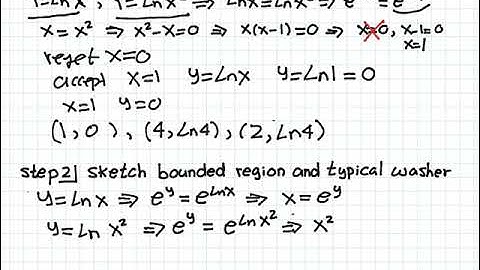 y=Ln x , y=Ln x² ⇒ Lnx=Lnx² ⇒ e = e
x = x² ⇒ x²-x=0 ⇒ x(x-1)=0 ⇒ x=0, x-1=0
x=1
reject x=0
accept x=1 y=Lnx y=Ln1=0
x=1 y=0
(1,0), (4,Ln4), (2,Ln4)
step2| sketch bounded region and typical washer
y=Lnx ⇒ e^y=e^Lnx ⇒ x=e^y
y=Ln x² ⇒ e^y=e^Ln x² ⇒ x²